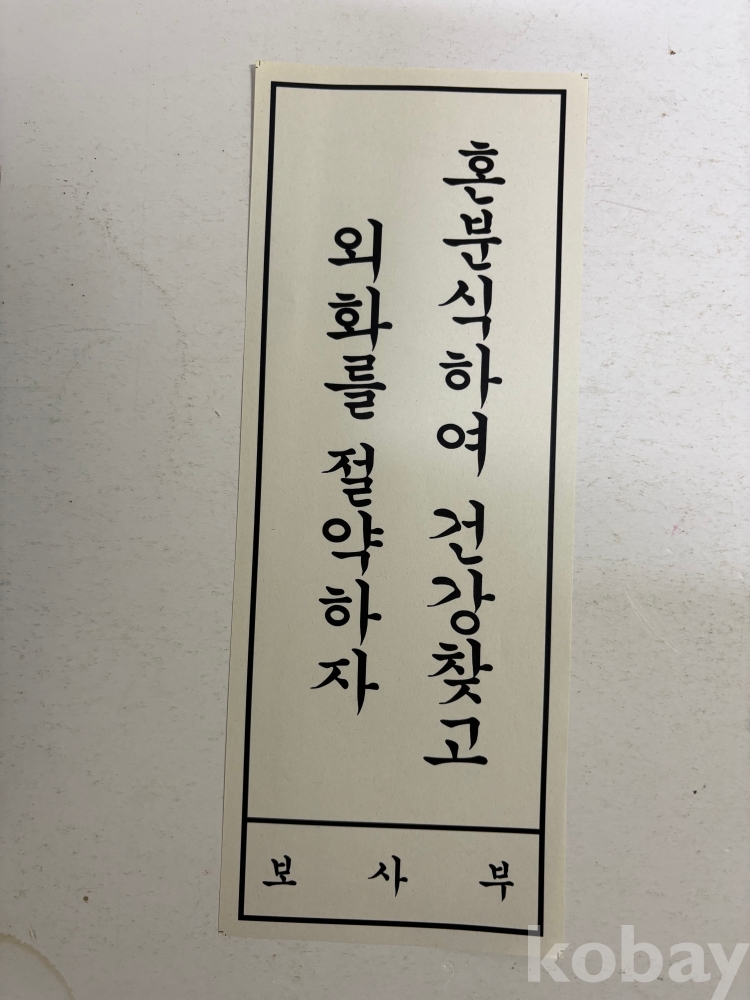 혼분식하여 건강찾고
외화를 절약하자
보 사 부
kobay